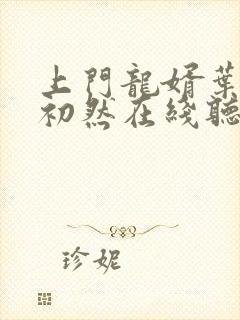 上門龍婿葉
初然在綫聽
珍妮